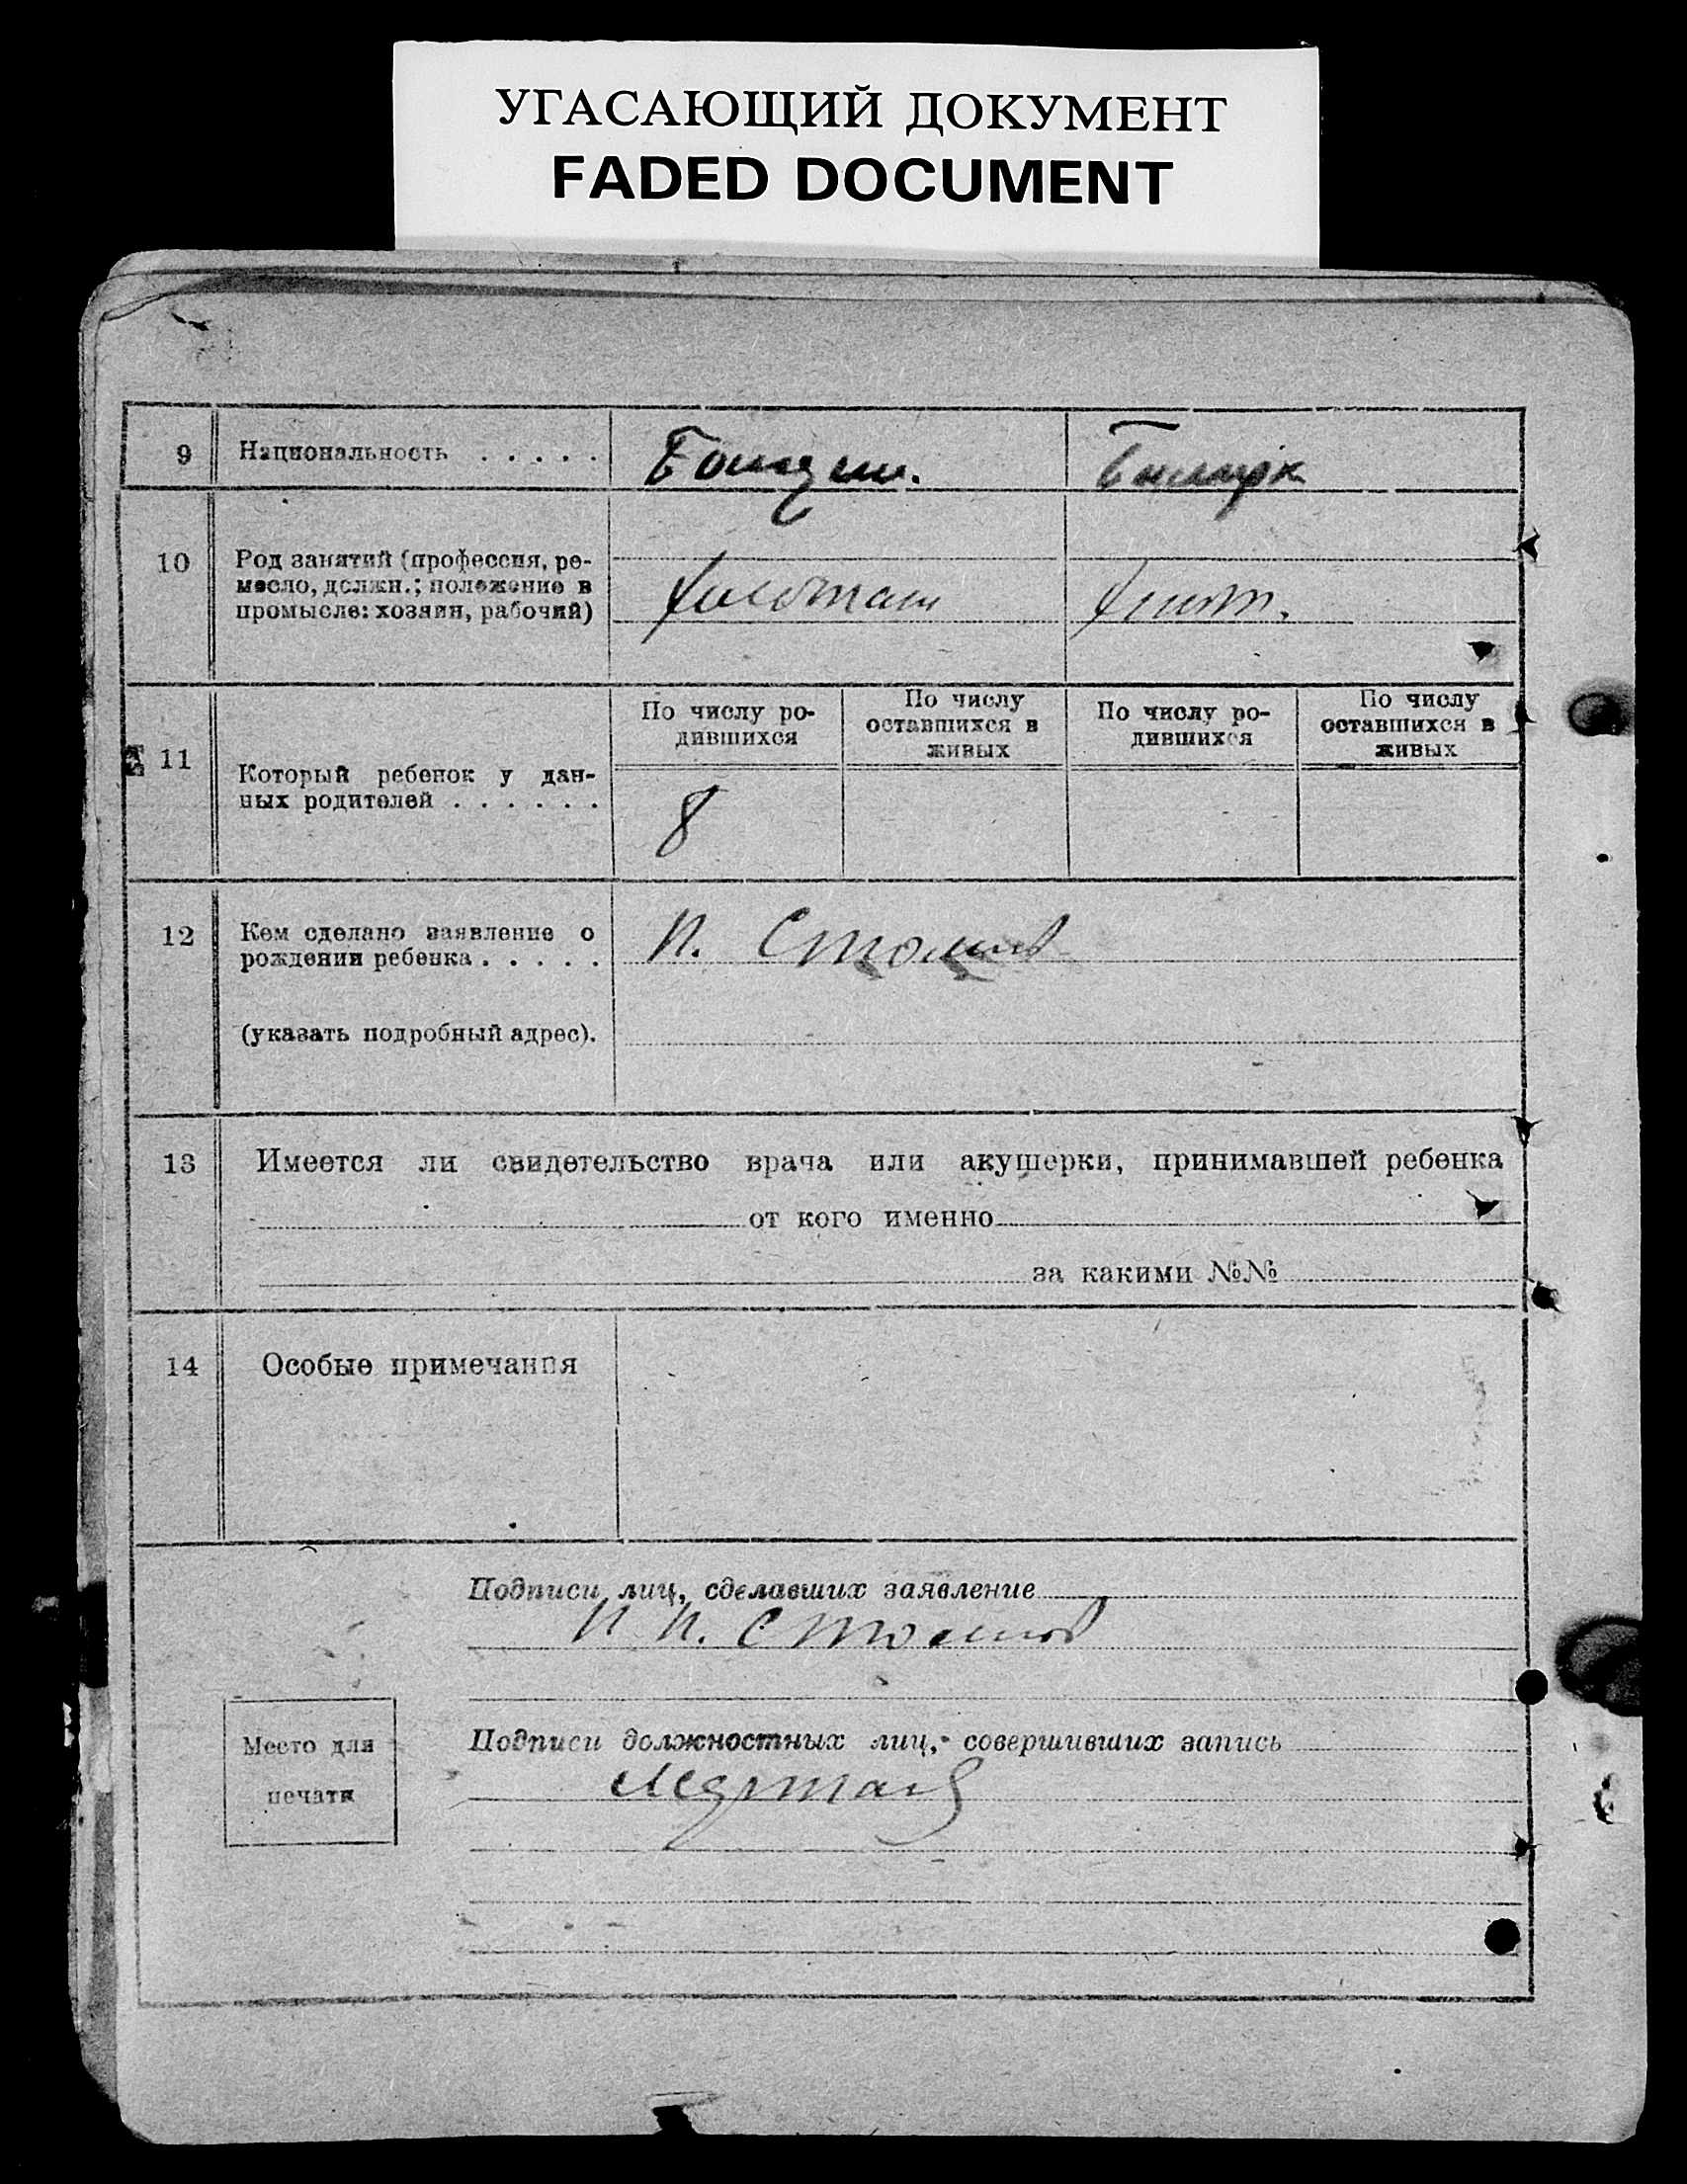 УГАСАЮЩИЙ ДОКУМЕНТ
FADED DOCUMENT
9 Национальность . . . . .
10 Род занятий (профессия, ре-
месло, должн.; положение в
промысле: хозяин, рабочий)
11 Который ребенок у дан-
ных родителей . . . . . .
По числу ро-
дившихся
По числу
оставшихся в
живых
По числу ро-
дившихся
По числу
оставшихся в
живых
8
12 Кем сделано заявление о
рождении ребенка . . . . .
(указать подробный адрес).
П.
13 Имеется ли свидетельство врача или акушерки, принимавшей ребенка
от кого именно
за какими №№
14 Особые примечания
Подписи лиц, сделавших заявление
Место для
печати
Подписи должностных лиц, совершивших запись